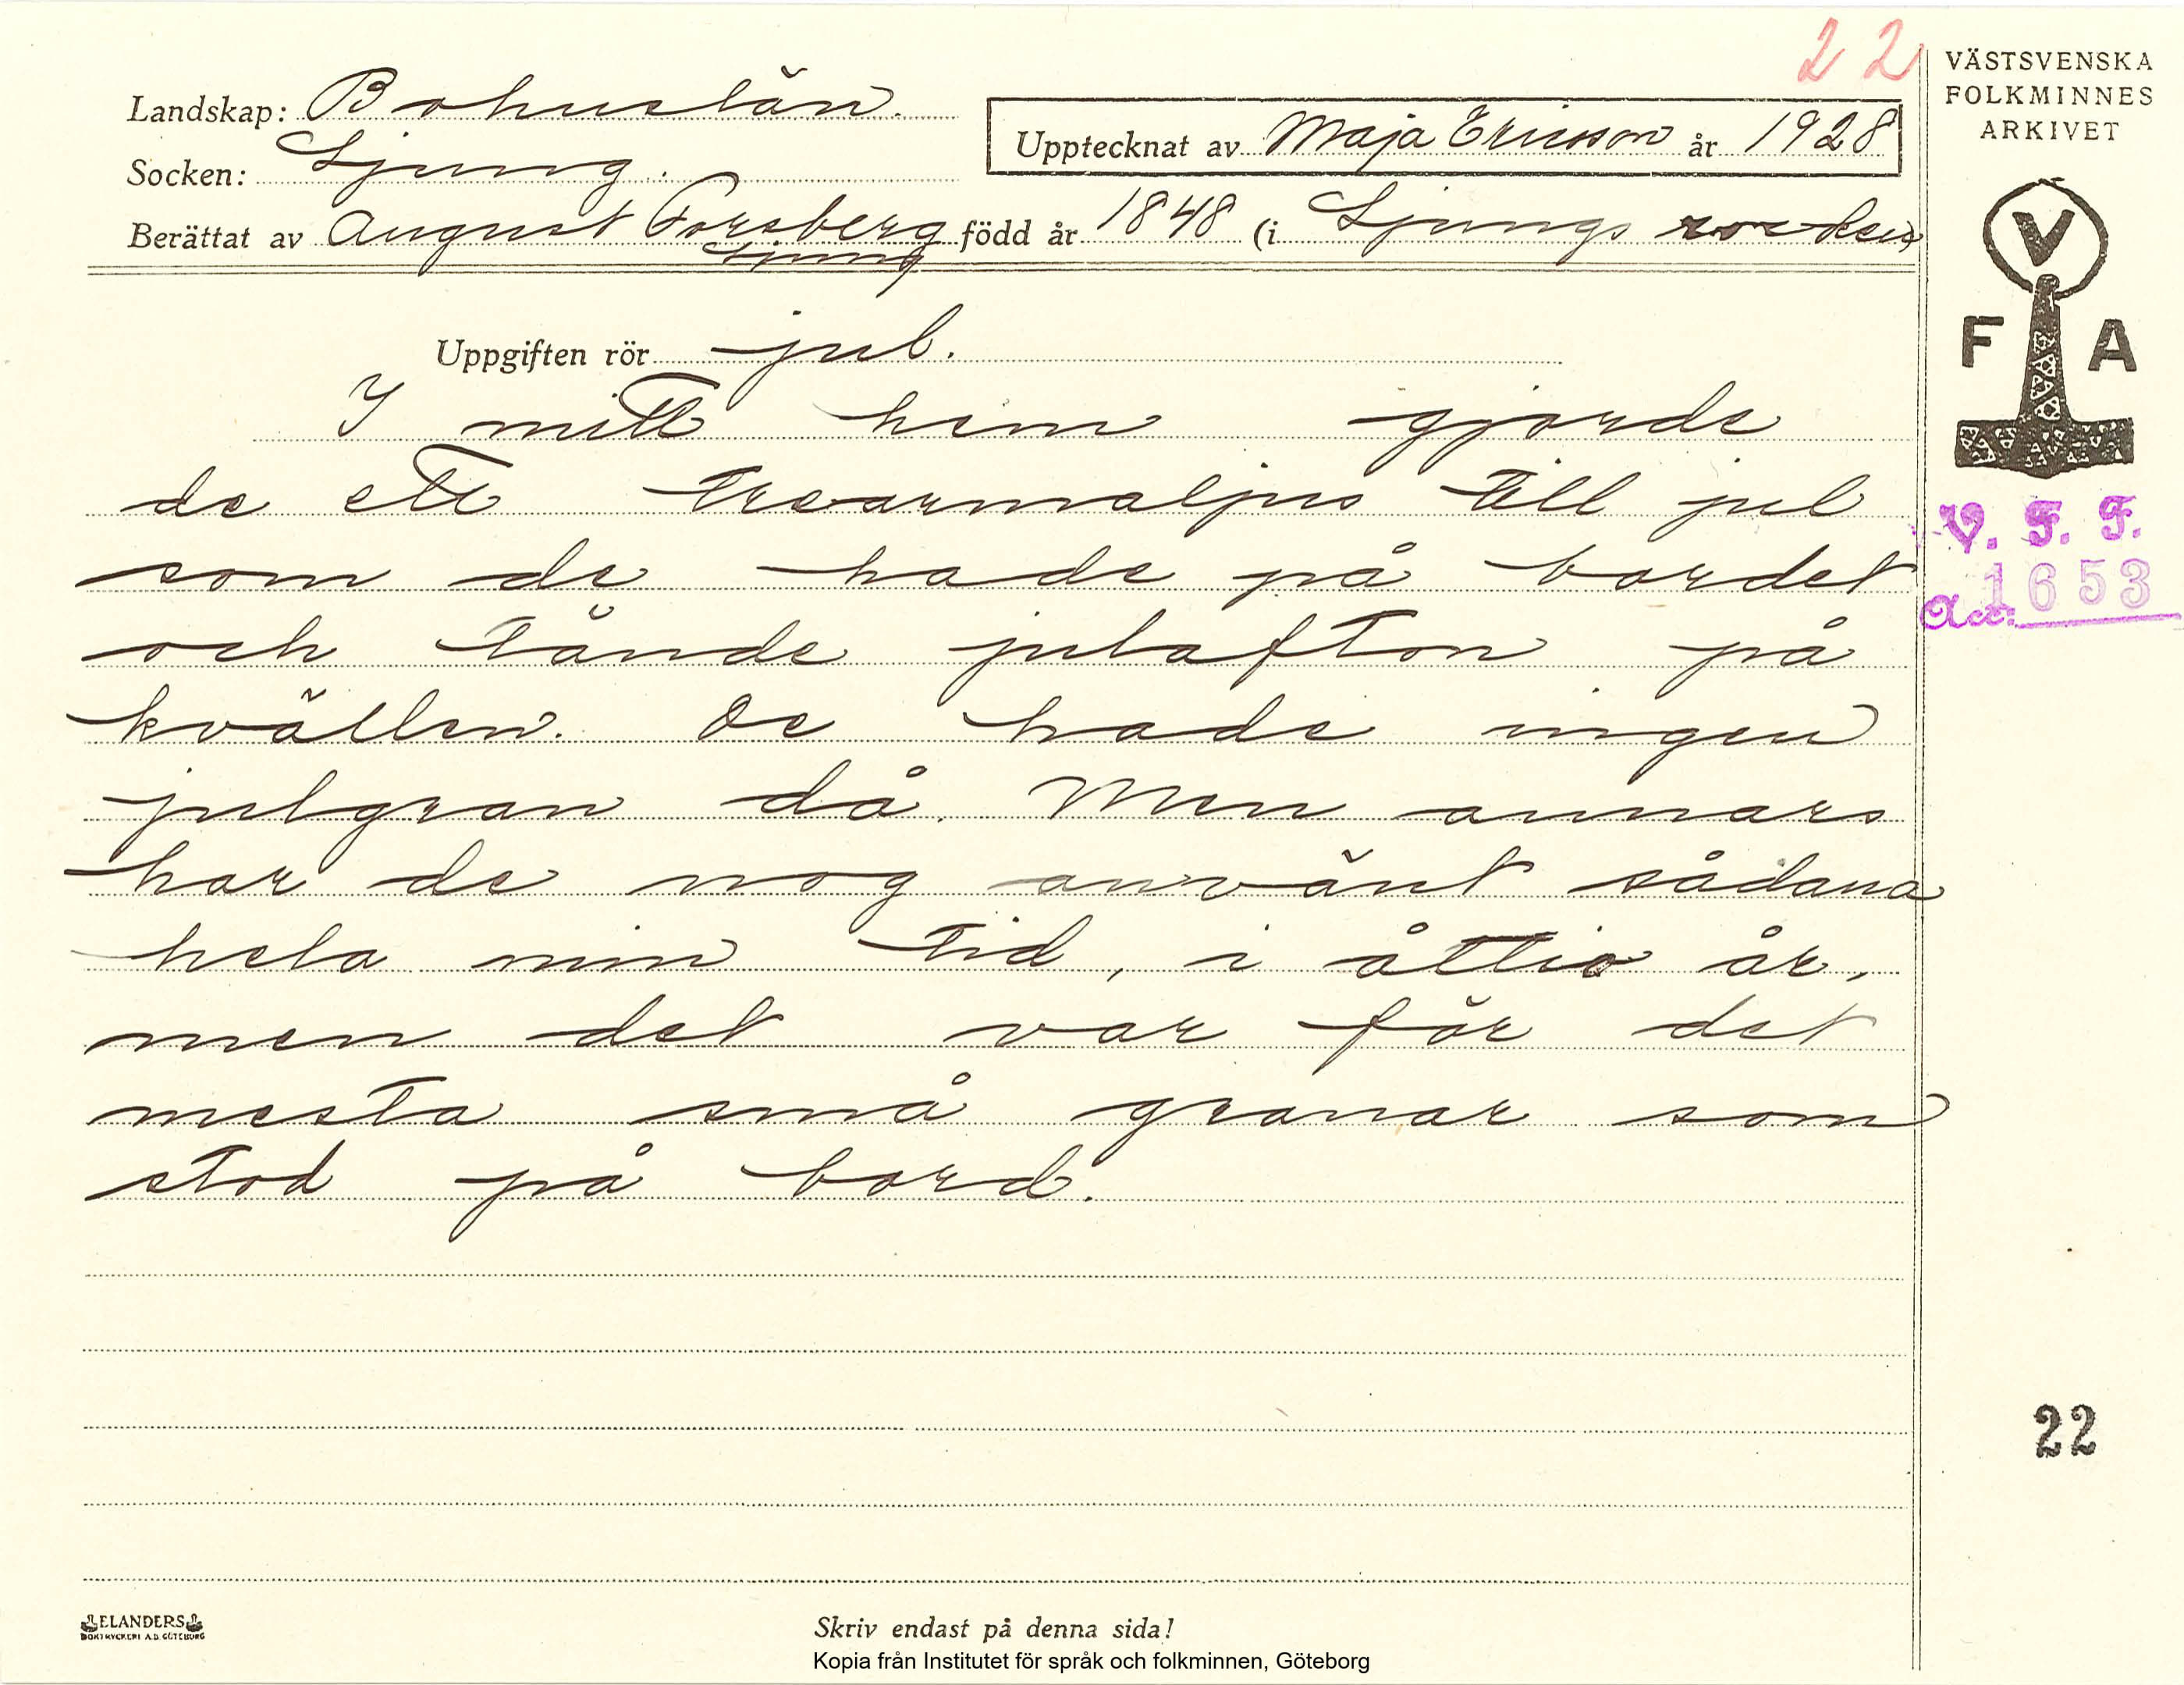 22
VÄSTSVENSKA
FOLKMINNES
ARKIVET
Landskap: Bohuslän.
Upptecknat av Maja Ericsson år 1928
Socken: Ljung.
Berättat av August Forsberg född år 1848 (i Ljungs socken)
Ljung
V
F A
Uppgiften rör jul.
I mitt hem gjorde
de ett trearmaljus till jul
som de hade på bordet
och tände julafton på
kvällen. De hade ingen
julgran då. Men annars
har de nog använt sådana
hela min tid, i åttio år,
men det var för det
mesta små granar som
stod på bord.
V. F. F.
Acc: 1653
22
ELANDERS
BOKTRYCKERI A.B. GÖTEBORG
Skriv endast på denna sida!
Kopia från Institutet för språk och folkminnen, Göteborg